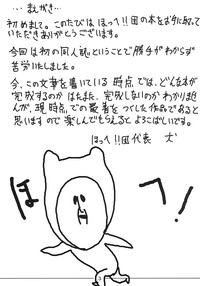 … まえがき …
初めまして。このたびはほっへ!!団の本をお手に取って
いただきありがとうございます。
今回は初の同人誌ということで勝手がわからず
苦労いたしました。
今、この文章を書いている時点では、どんな本が
完成するのかはたまた、完成しないのかわかりませ
んが、現時点での最善をつくした作品であると
思いますので楽しんでもらえるとよろこばしいです。
ほっへ!!団代表 犬
ほへ!